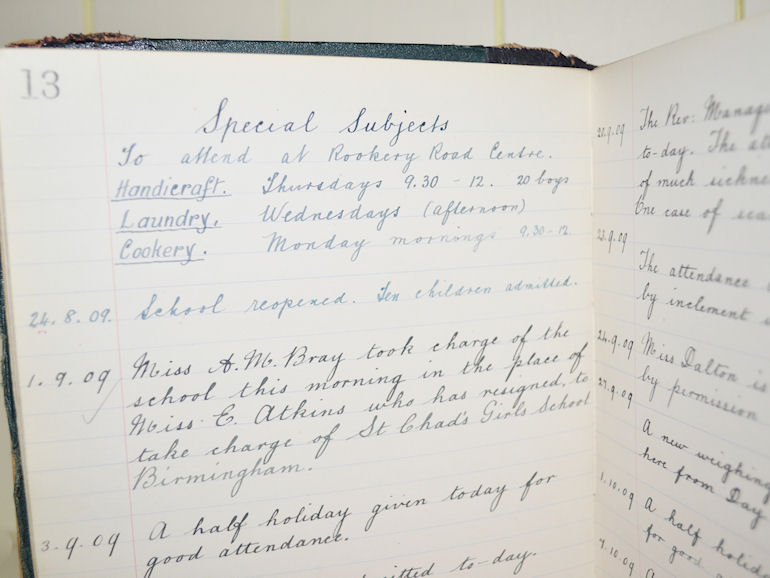 13
Special Subjects
To attend at Rookery Road Centre.
Handicraft. Thursdays 9.30 - 12. 20 boys
Laundry. Wednesdays (afternoon)
Cookery. Monday mornings 9.30-12
24.8.09. School reopened. Ten children admitted.
1.9.09 Miss A.M. Bray took charge of the
school this morning in the place of
Miss E. Atkins who has resigned, to
take charge of St Chad's Girls School
Birmingham.
3.9.09 A half holiday given today for
good attendance.
to-day.
20.9.09 The Rev: Manage
to-day. The
of much
One case of
23.9.09
The attendance
by inclement
24.9.09 Miss Dalton is
by permission
27.9.09
A new weighing
here from Day
1.10.09 A half
for
7.10.09 A